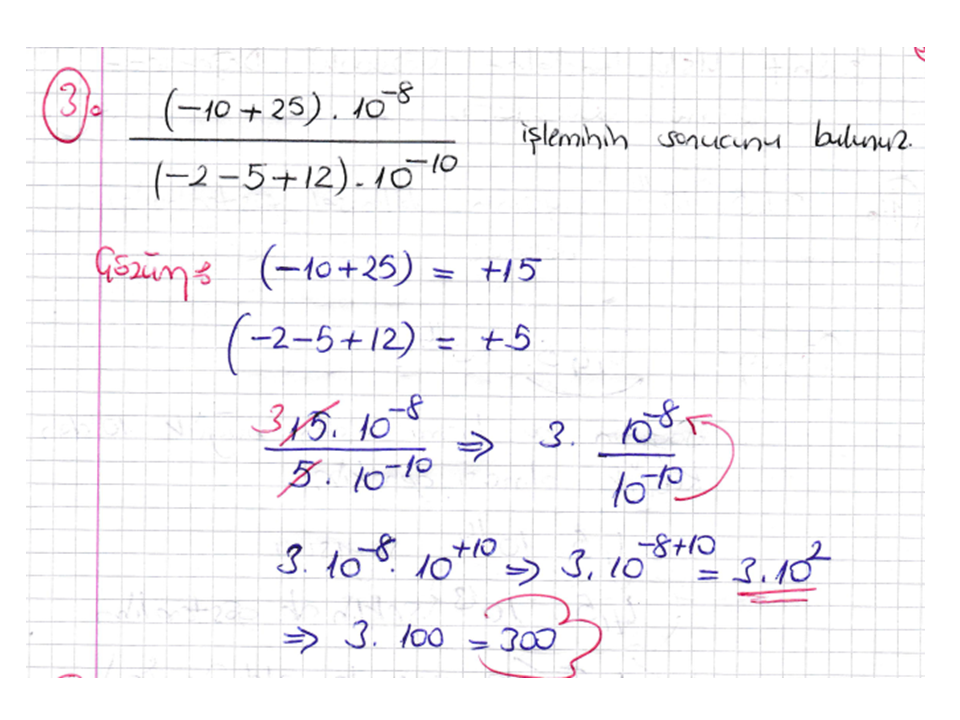 3. (-10+25).10⁻⁸ / (-2-5+12).10⁻¹⁰ işleminin sonucunu bulunuz.
Çözüm: (-10+25) = +15
(-2-5+12) = +5
3 15.10⁻⁸ / 5.10⁻¹⁰ ⇒ 3. 10⁻⁸ / 10⁻¹⁰
3.10⁻⁸.10⁺¹⁰ ⇒ 3.10⁻⁸⁺¹⁰ = 3.10²
⇒ 3.100 = 300